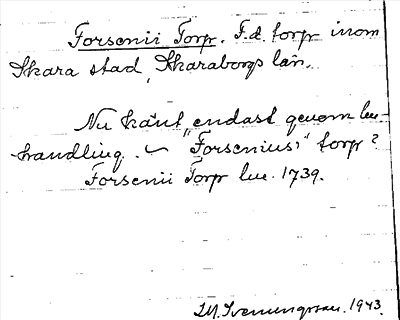 Forsenii Torp. F.d. torp inom
Skara stad, Skaraborgs län.
Nu känt endast genom lm-
handling. ~ "Forsenius'" torp?
Forsenii Torp lm. 1739.
Svenningsson. 1943.